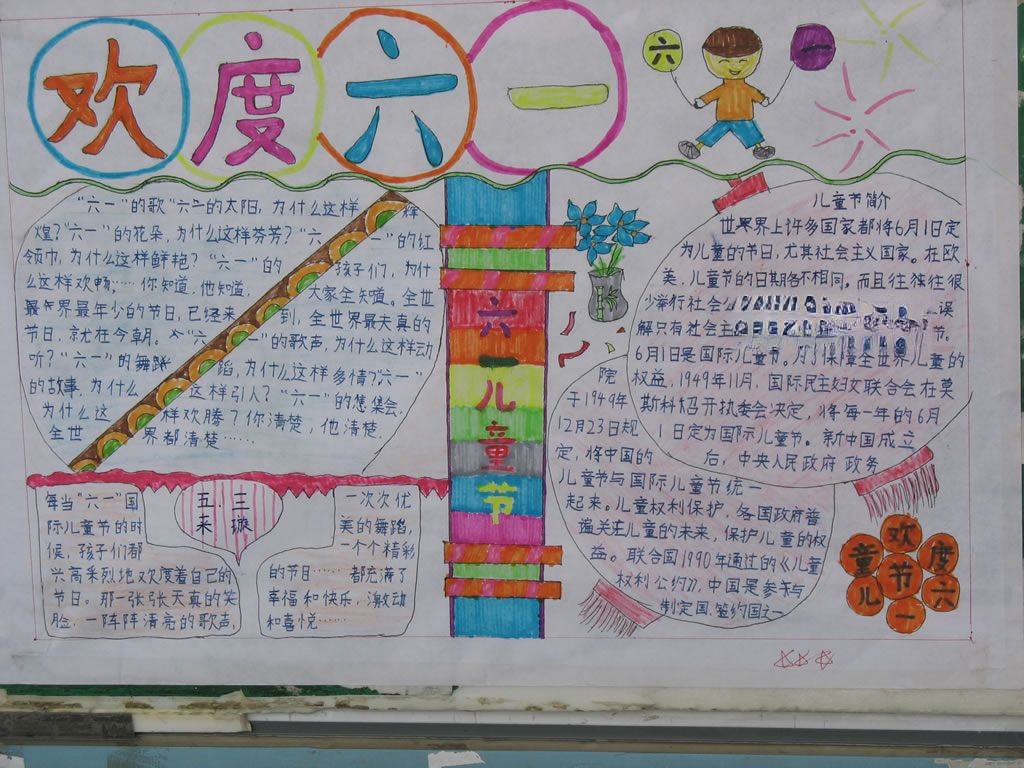 欢度六一
六 一
"六一"的歌"六一的太阳,为什么这样 辉
煌?"六一"的花朵,为什么这样芬芳?"六 一"的红
领巾,为什么这样鲜艳?"六一"的 孩子们,为什
么这样欢畅……你知道,他知道, 大家全知道。全世
最年界最年少的节日,已经来 到,全世界最天真的
节日,就在今朝。"六 一"的歌声,为什么这样动
听?"六一"的舞蹈 蹈,为什么这样多情?"六一"
的故事,为什么 这样引人?"六一"的集会,
为什么这 样欢腾?你清楚,他清楚,
全世 界都清楚……
每当"六一"国
际儿童节的时
候,孩子们都
兴高采烈地欢度着自己的
节日。那一张张天真的笑
脸,一阵阵清亮的歌声,
五.三
来 璇
一次次优
美的舞蹈,
一个个精彩
的节目……都充满了
幸福和快乐,激动
和喜悦……
六一儿童节
儿童节简介
世界界上许多国家都将6月1日定
为儿童的节日,尤其社会主义国家。在欧
美,儿童节的日期各不相同。而且往往往很
少举行社会 误
解只有社会主 节。
6月1日是国际儿童节。为了保障全世界儿童的
权益,1949年11月,国际民主妇女联合会在莫
斯科召开执委会决定,将每一年的6月
1日定为国际儿童节。新中国成立
后,中央人民政府政务
院
于1949年
12月23日规
定,将中国的
儿童节与国际儿童节统一
起来。儿童权利保护,各国政府普
遍关注儿童的未来,保护儿童的权
益。联合国1990年通过的《儿童
权利公约》,中国是参与
制定国签约国之一
欢度六一儿童节